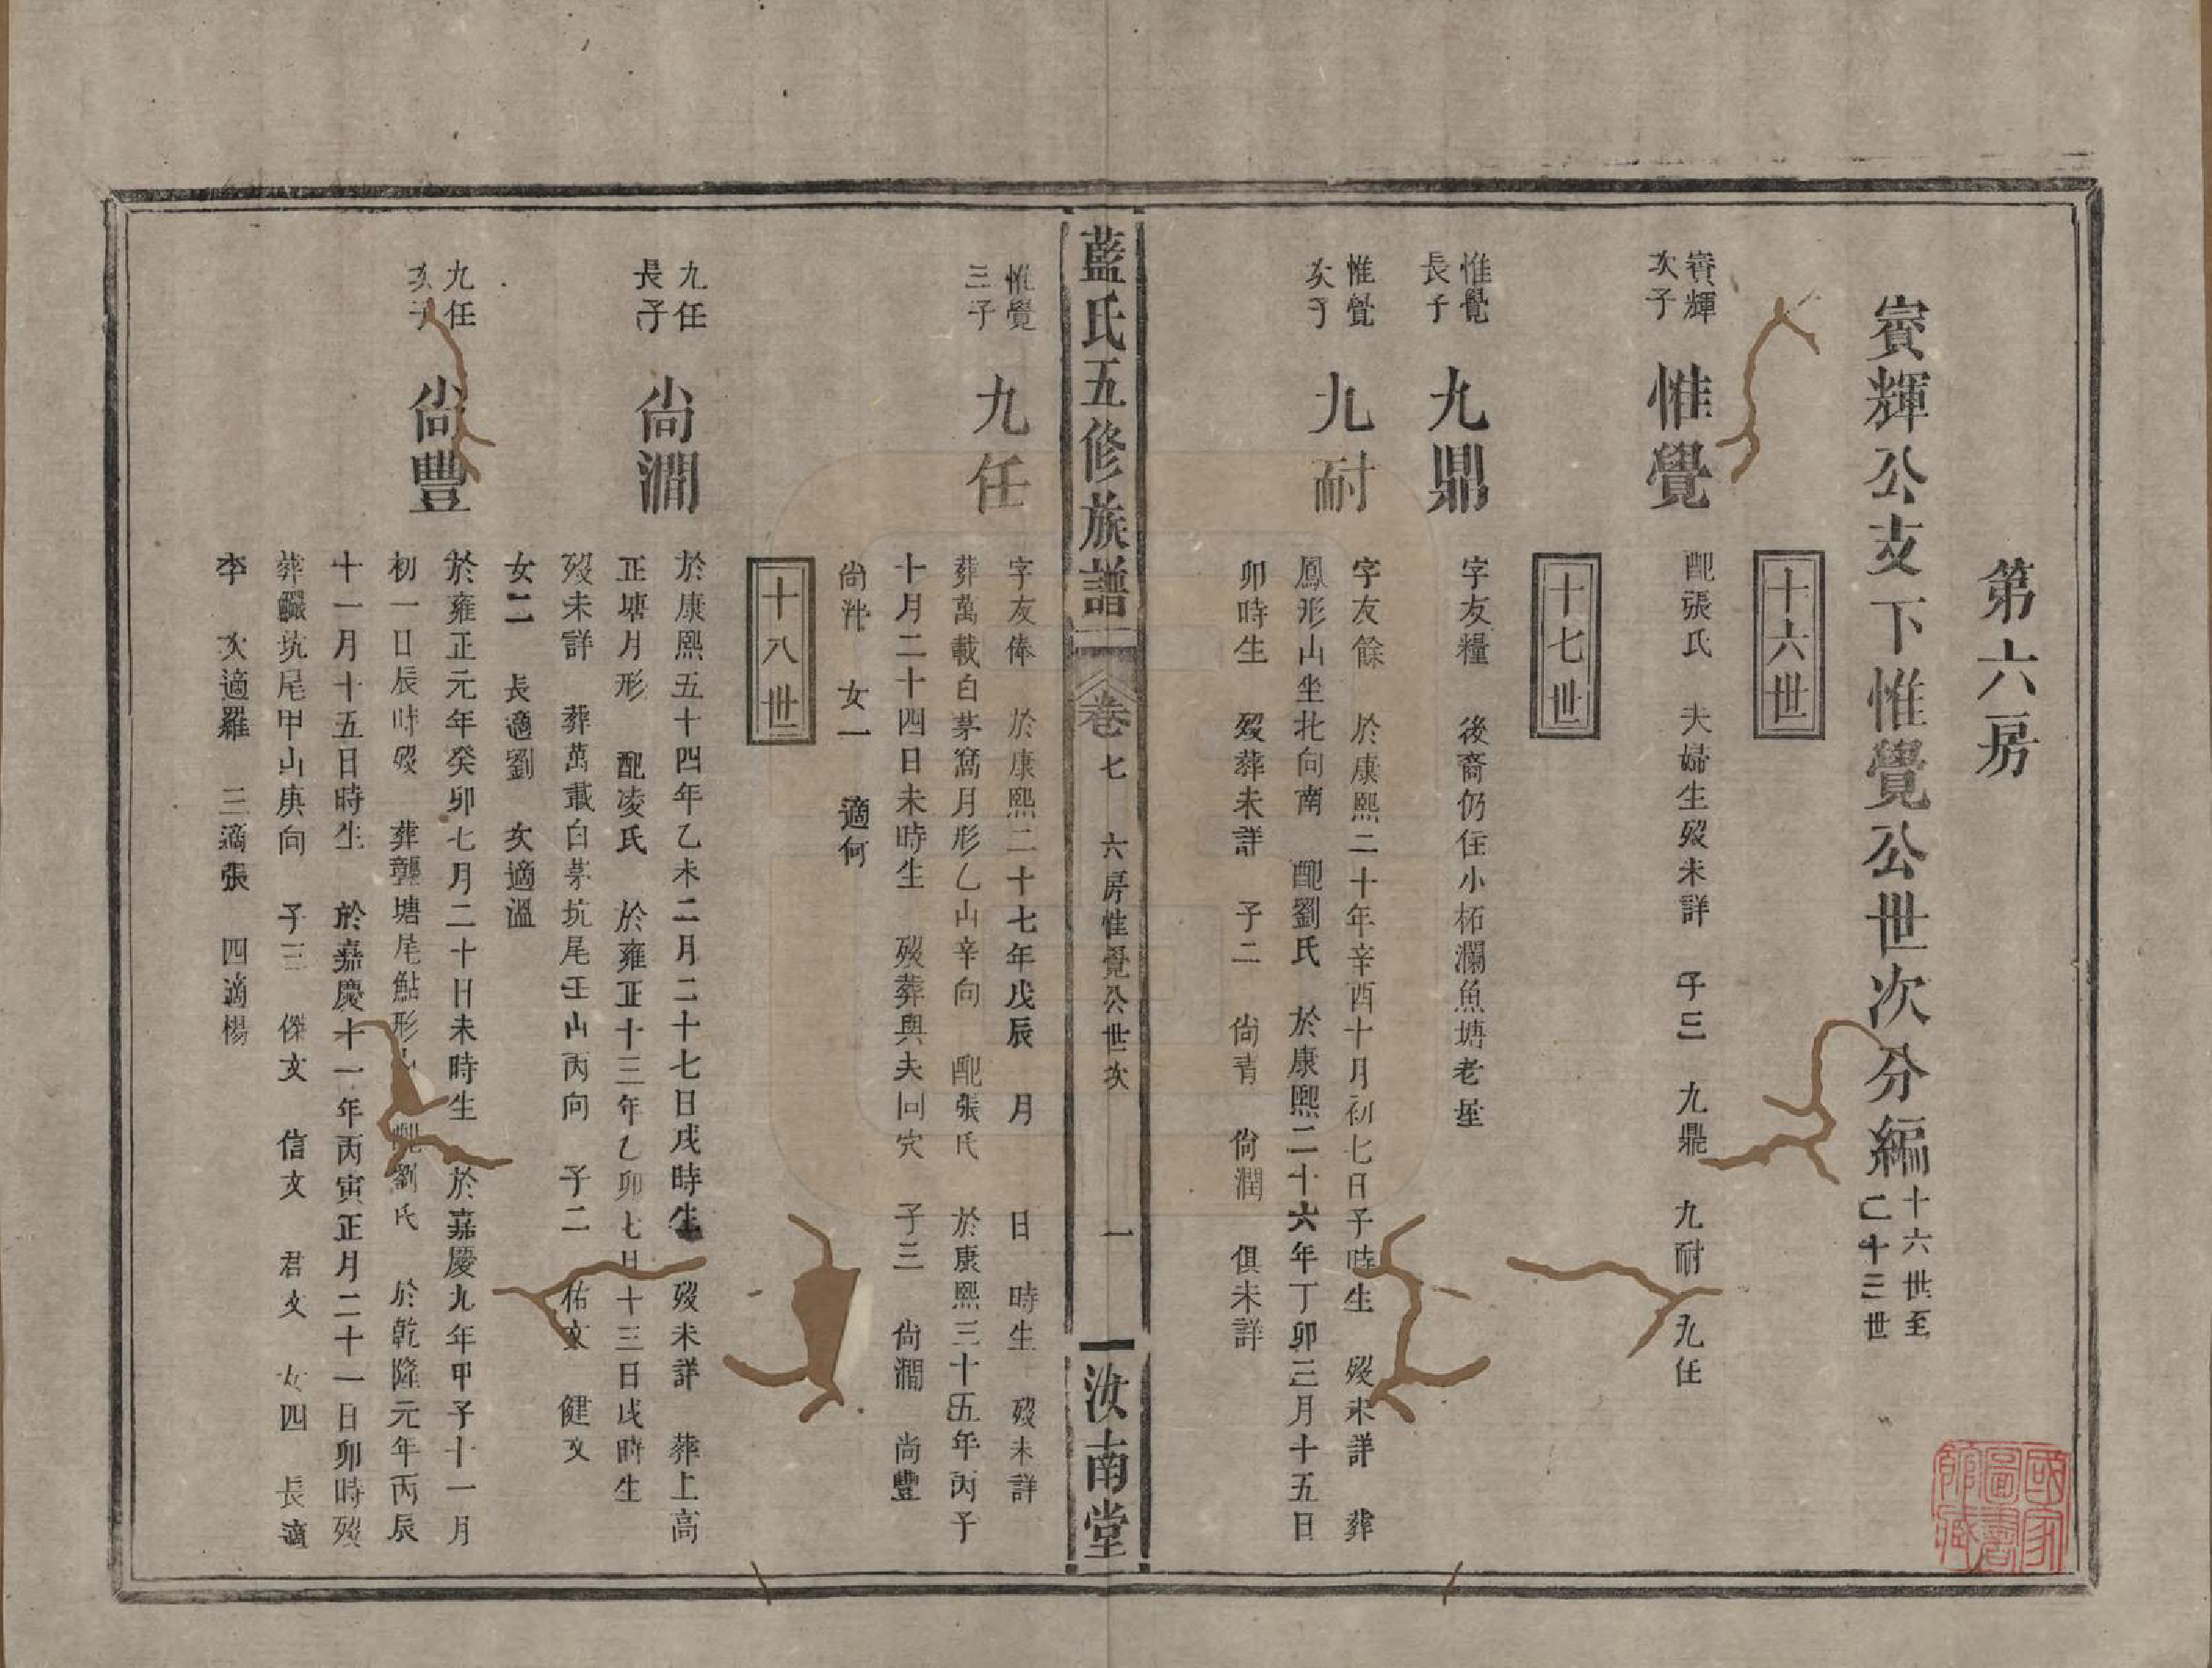 第六房
賓輝公支下惟覺公世次分編十六世至二十三世
十六世
賓輝次子 惟覺 配張氏 夫婦生歿未詳 子三 九鼎 九耐 九任
十七世
惟覺長子 九鼎 字友糧 後裔仍住小柘瀾魚塘老星
惟覺次子 九耐 字友餘 於康熙二十年辛酉十月初七日子時生 歿未詳 葬
鳳形山坐北向南 配劉氏 於康熙二十六年丁卯三月十五日
卯時生 歿葬未詳 子二 尙青 尙潤 俱未詳
藍氏五修族譜 卷七 六房惟覺公世次 一 汝南堂
惟覺三子 九任 字友俸 於康熙二十七年戊辰 月 日 時生 歿未詳
葬萬載白茅窩月形乙山辛向 配張氏 於康熙三十五年丙子
十月二十四日未時生 歿葬與夫同穴 子三 尙澗 尙豐
尙 女一 適何
十八世
九任長子 尙澗 於康熙五十四年乙未二月二十七日戌時生 歿未詳 葬上高
正塘月形 配凌氏 於雍正十三年乙卯七月十三日戌時生
歿未詳 葬萬載白茅坑尾壬山丙向 子二 佑文 健文
女二 長適劉 次適溫
九任次子 尙豐 於雍正元年癸卯七月二十日未時生 於嘉慶九年甲子十一月
初一日辰時歿 葬龔塘尾鮎形 配劉氏 於乾隆元年丙辰
十一月十五日時生 於嘉慶十一年丙寅正月二十一日卯時歿
葬 坑尾甲山庚向 子三 傑文 信文 君文 女四 長適
李 次適羅 三適張 四適楊
國家圖書館藏